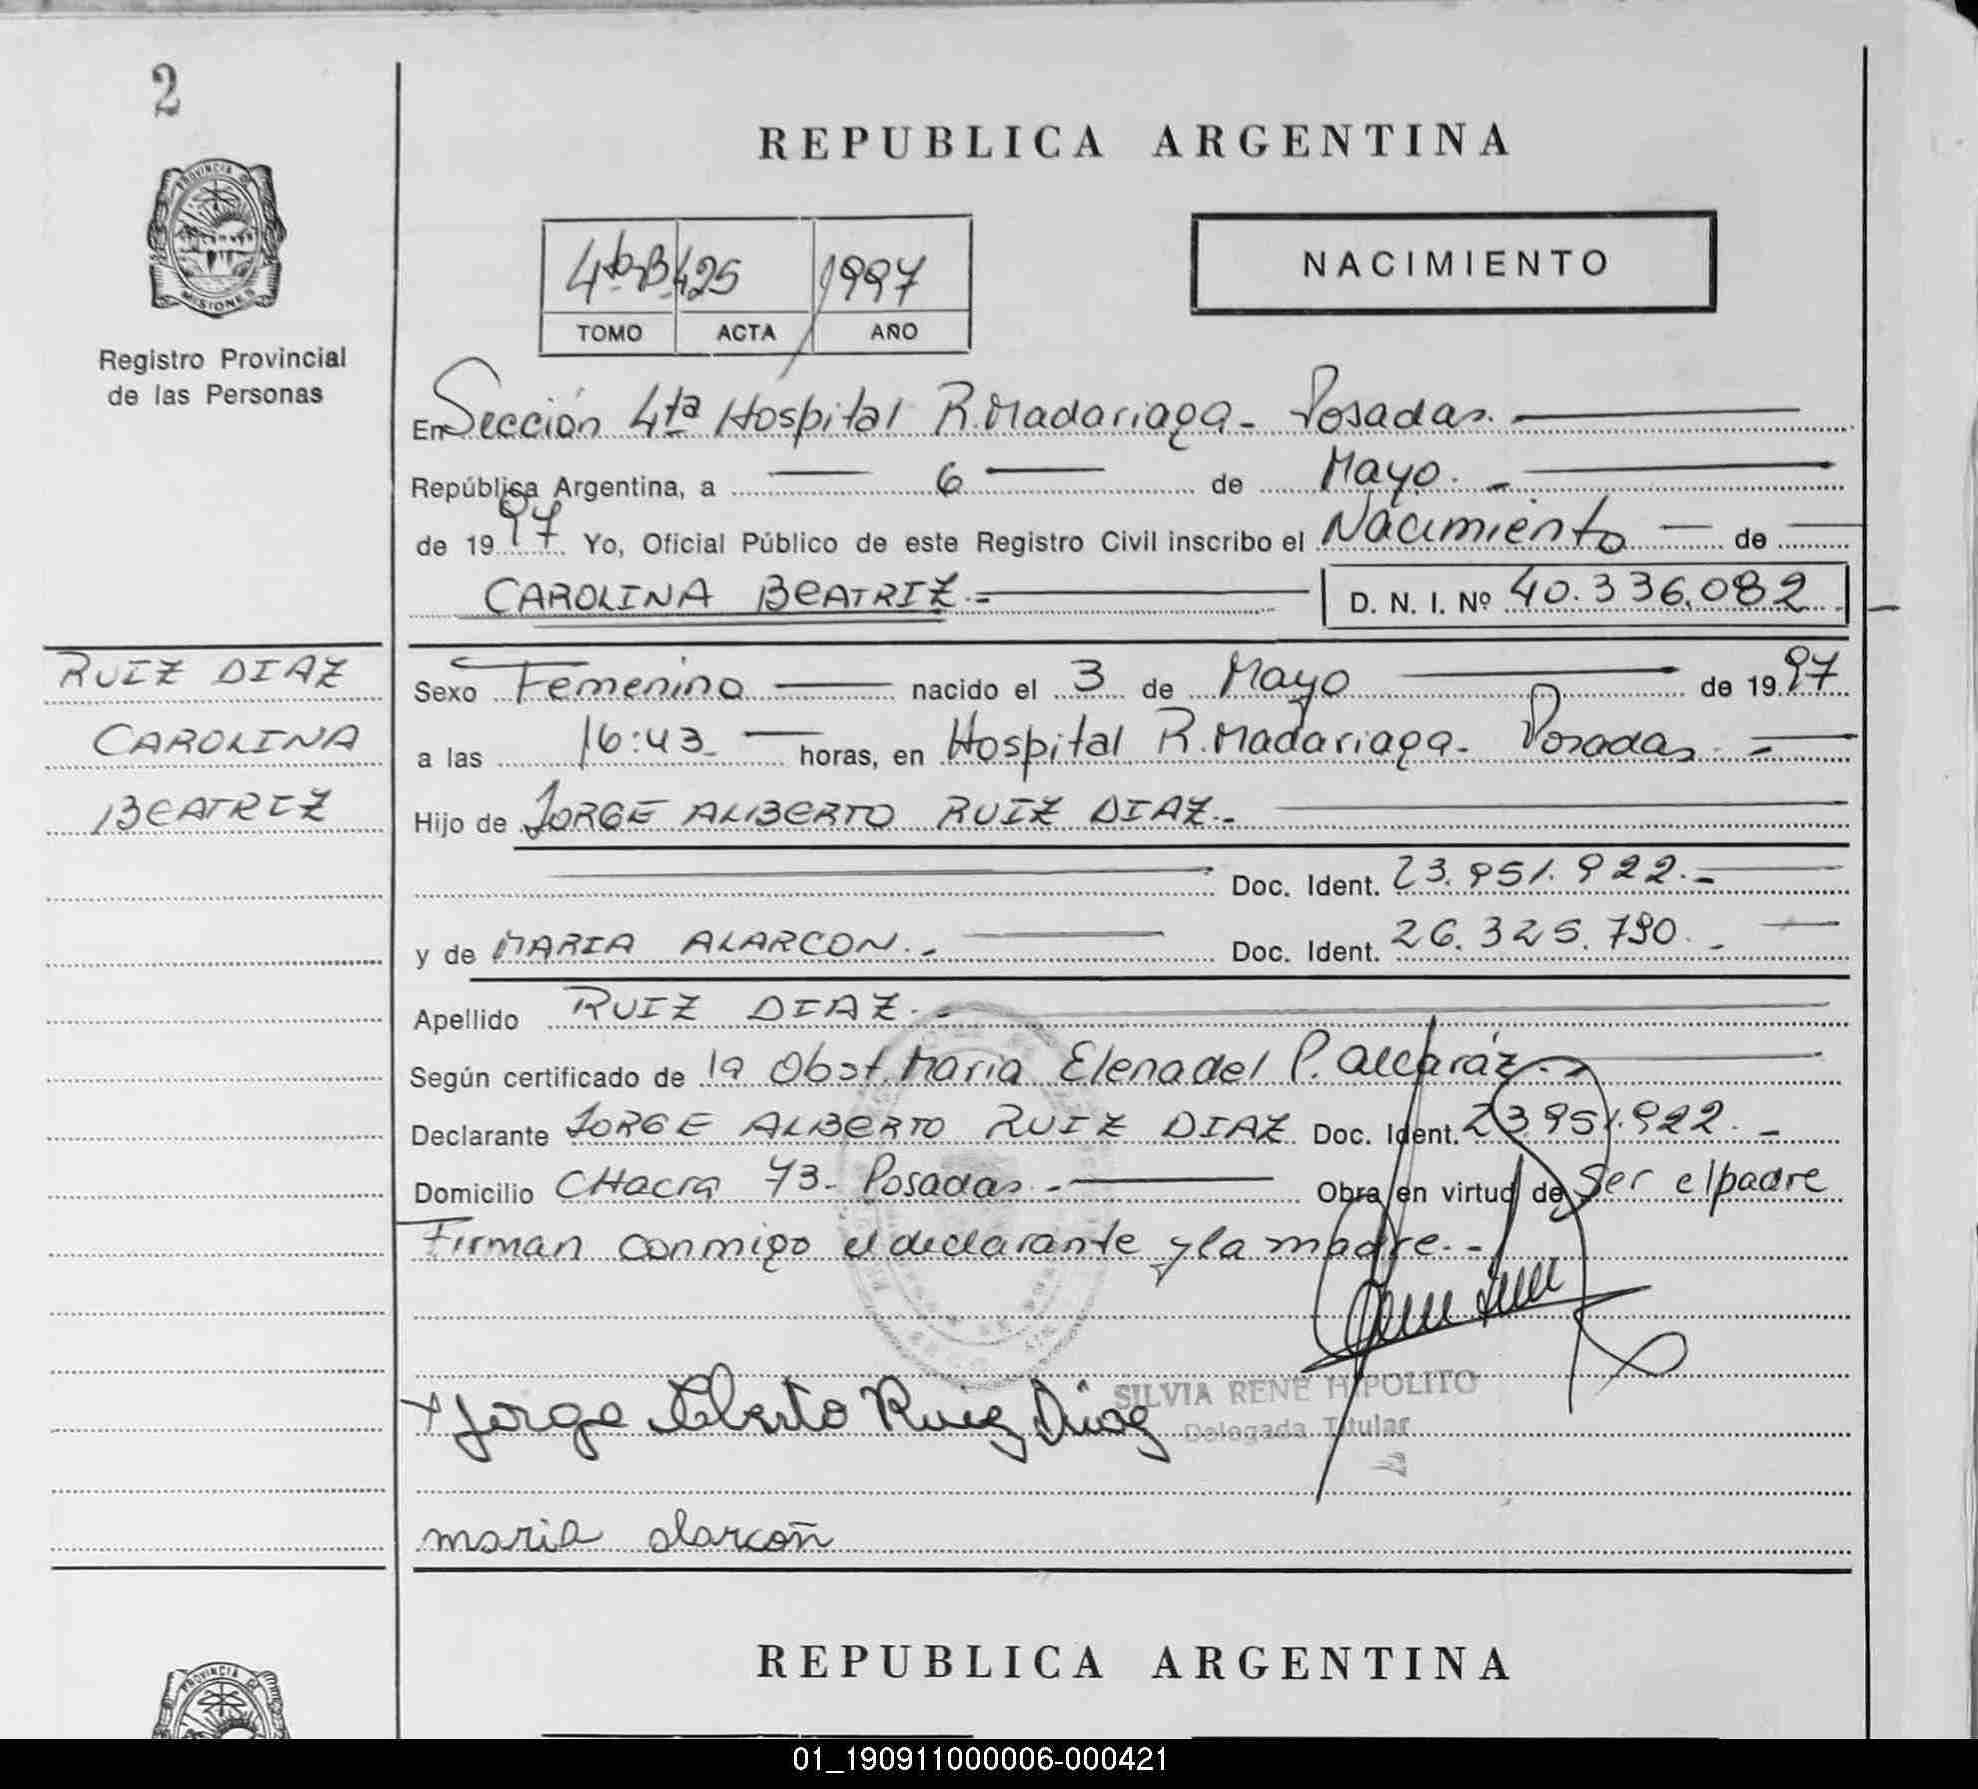 2
PROVINCIA DE
MISIONES
Registro Provincial
de las Personas
REPUBLICA ARGENTINA
425 1997
TOMO ACTA AÑO
NACIMIENTO
En Sección 4ta Hospital R. Madariaga - Posadas.
República Argentina, a 6 de Mayo.
de 1997 Yo, Oficial Público de este Registro Civil inscribo el Nacimiento de
CAROLINA BEATRIZ.= D. N. I. Nº 40.336.082
RUIZ DIAZ
CAROLINA
BEATRIZ
Sexo Femenino nacido el 3 de Mayo de 1997
a las 16:43 horas, en Hospital R. Madariaga - Posadas.
Hijo de JORGE ALBERTO RUIZ DIAZ.-
Doc. Ident. 23.951.922.-
y de MARIA ALARCON.- Doc. Ident. 26.325.790.-
Apellido RUIZ DIAZ.-
Según certificado de la Obst. Maria Elena del P. Alcaráz.-
Declarante JORGE ALBERTO RUIZ DIAZ Doc. Ident. 23.951.922.-
Domicilio CHacra 73 - Posadas.- Obra en virtud de Ser el padre
Firman conmigo el declarante y la madre.-
SILVIA RENE HIPOLITO
Delegada Titular
Jorge Alberto Ruiz Diaz
maria alarcon
REPUBLICA ARGENTINA
PROVINCIA
01_190911000006-000421